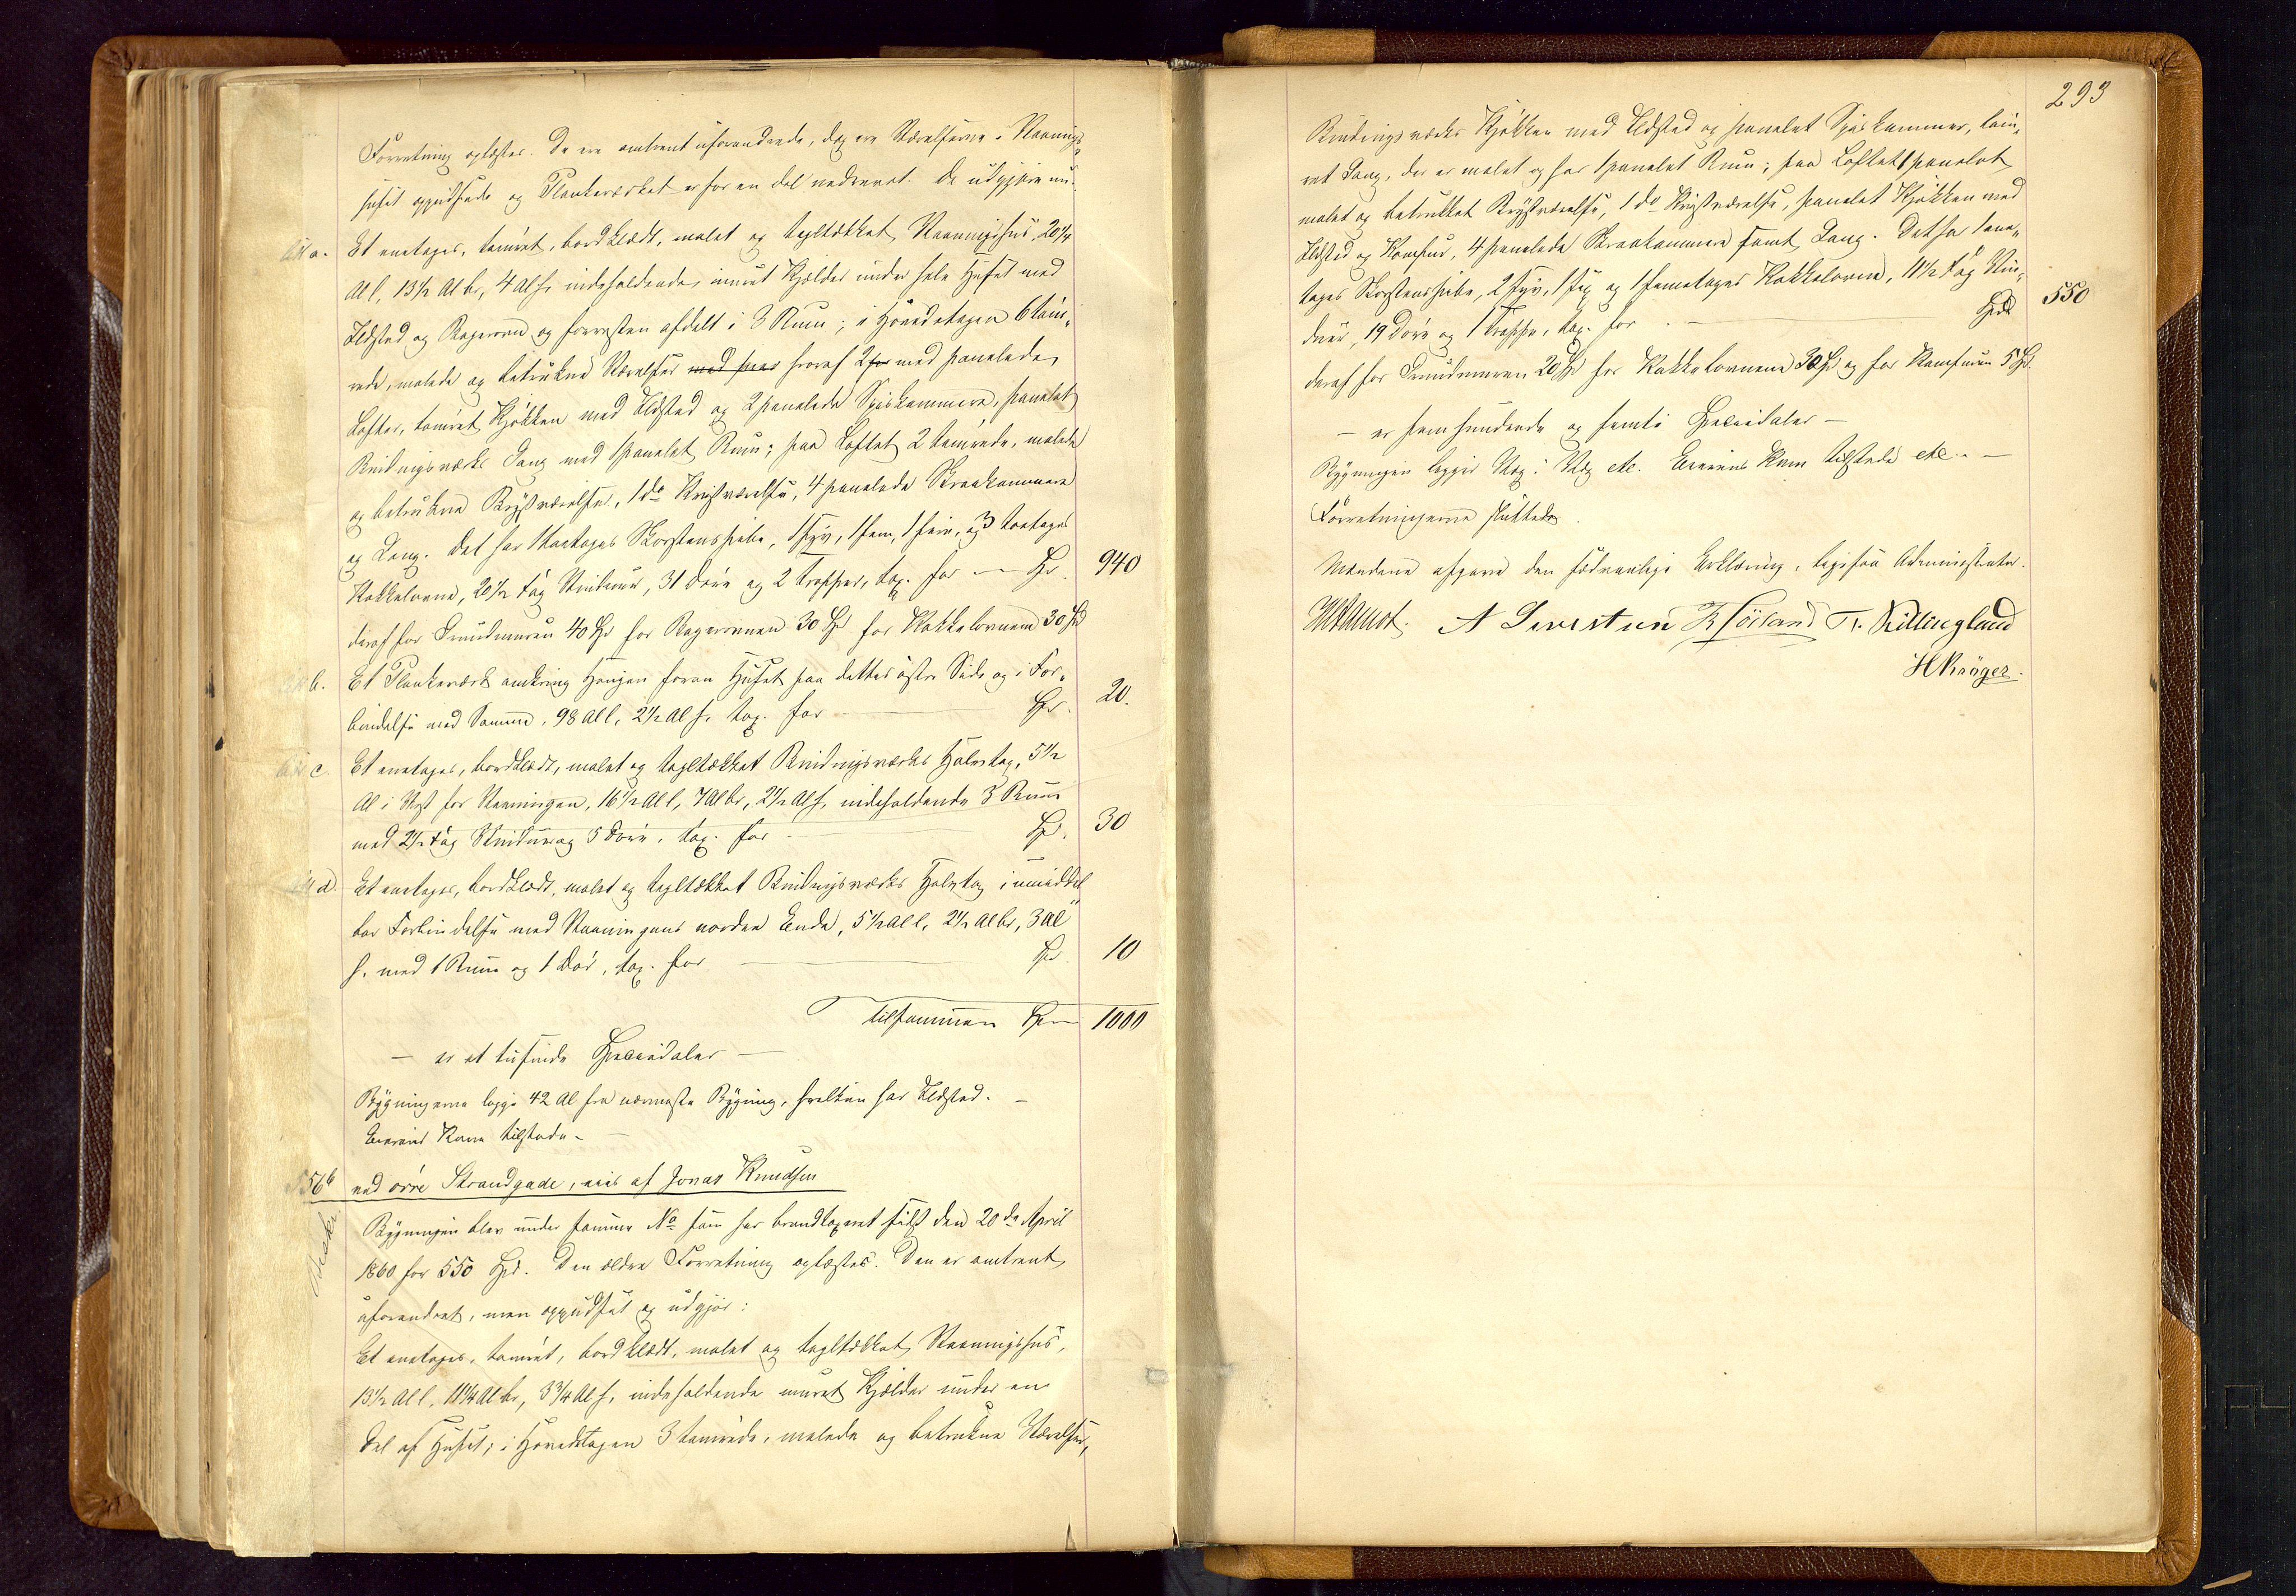 Forretning oplæstes. De ere omtrent uforandrede, dog ere Værelserne i Vaanings¬
huset oppudsede og Plankeværket er for en del nedrevet. De udgjøre nu:
a. Et enetages, tømret, bordklædt, malet og tegltækket Vaaningshus, 20¼
Al l, 13½ Al br, 4 Al h, indeholdende, muret Kjælder under hele Huset med
Ildsted og Bagerovn og forresten afdelt i 3 Rum; i Hovedetagen 6 tøm¬
rede, malede og betrukne Værelser med pane hvoraf 2 for med panelede
Lofter, tømret Kjøkken med Ildsted og 2 panelede Spiskammere, panelet
Bindingsværks Gang med 1 panelet Rum; paa Loftet 2 tømrede, malede
og betrukne Kvistværelser, 1 do Kvistværelse, 4 panelede Skraakammere
og Gang. Det har 1 toetages Skorstenspibe, 1 fyr, 1 fem, 1 fire, og 3 toetages
Kakkelovne, 20½ Fag Vinduer, 31 Døre og 2 Trapper, tax. for — Spd. 940
deraf for Grundmuren 40 Spd for Bagerovnen 30 Spd for Kakkelovnene 30 Spd
b. Et Plankeværk omkring Haugen foran Huset paa dettes østre Side og i For¬
bindelse med Samme, 98 Al l, 2½ Al h, tax. for Spd. 20.
c. Et enetages, bordklædt, malet og tegltækket Bindingsværks Halvtag, 5½
Al i Vest for Vaaningen, 16½ Al l, 7 Al br, 2½ Al h, indeholdende 3 Rum
med 2½ Fag Vinduer og 5 Døre, tax. for Spd. 30
d. Et enetages, bordklædt, malet og tegltækket Bindingsværks Halvtag i umiddel¬
bar Forbindelse med Vaaningens nordre Ende, 5½ Al l, 2½ Al br, 3 Al
h, med 1 Rum og 1 Dør, tax. for Spd. 10
tilsammen Spd 1000
— er et tusinde Speciedaler —
Bygningerne ligge 42 Al fra nærmeste Bygning, hvilken har Ildsted. —
Eierens Kone tilstede. —
556b ved øvre Strandgade, eies af Jonas Knudsen
Bygningen blev under samme No som her brandtaxeret sidst den 20de April
1860 for 550 Spd. Den ældre Forretning oplæstes. Den er omtrent
uforandret, men oppudset og udgjør:
Et enetages, tømret, bordklædt, malet og tegltækket Vaaningshus,
13½ Al l, 11¼ Al br, 3¾ Al h, indeholdende muret Kjælder under en
Del af Huset; i Hovedetagen 3 tømrede, malede og betrukne Værelser,
293
Bindingsværks Kjøkken med Ildsted og panelet Spiskammer, tøm¬
ret Gang, der er malet og har 1 panelet Rum; paa Loftet 1 panelet
malet og betrukket Kvistværelse, 1 do Kvistværelse, panelet Kjøkken med
Ildsted og Komfur, 4 panelede Skraakammere samt Gang. Det har 1 ene¬
tages Skorstenspibe, 2 fyr, 1 sex og 1 femetages Kakkelovne, 11½ Fag Vin¬
duer, 19 Døre og 1 Trappe, tax. for — Spd 550
deraf for Grundmuren 20 Spd for Kakkelovnene 30 Spd og for Komfuren 5 Spd
— er femhundrede og femti Speciedaler —
Bygningen ligger Væg i Væg etc. Eierens Kone tilstede etc. —
Forretningerne sluttede.
Mændene afgave den sædvanlige Erklæring, ligesaa Administrator.
A Sivertsen K Høiland T. Killingland
H Krøger.